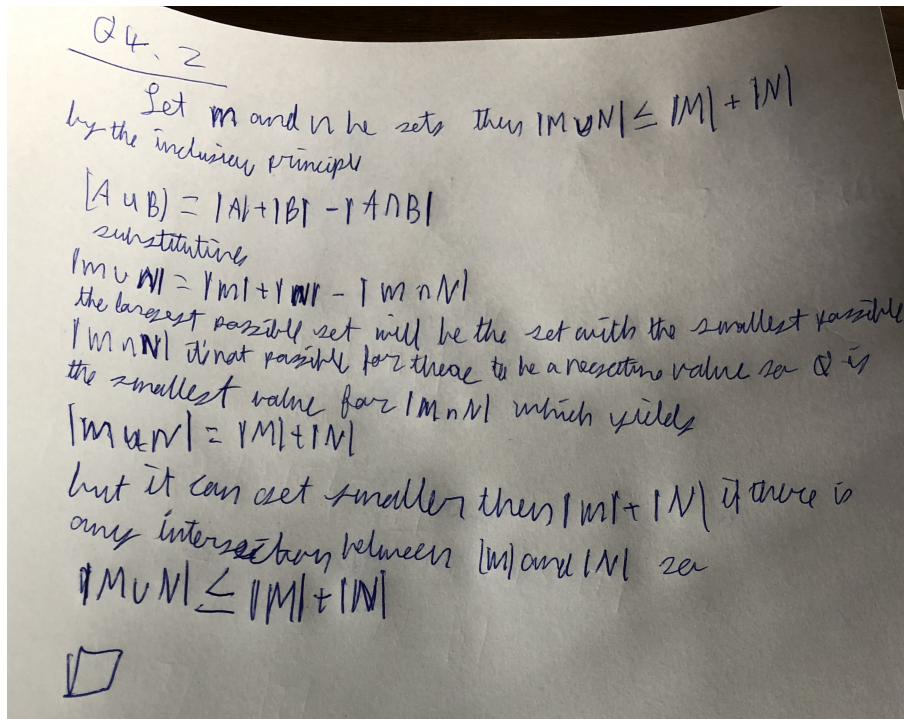 Q4.2
Let m and n be sets then |M∪N| ≤ |M| + |N|
by the inclusion principle
|A ∪ B) = |A|+|B| - |A∩B|
substituting
|m ∪ N| = |m|+|N| - |m∩N|
the largest possible set will be the set with the smallest possible
|m∩N| it's not possible for there to be a value so 0 is
the smallest value for |M∩N| which yields
|m∪N| = |M|+|N|
but it can get smaller then |m|+|N| if there is
any intersection between |m| and |N| so
|M∪N| ≤ |M|+|N|
□